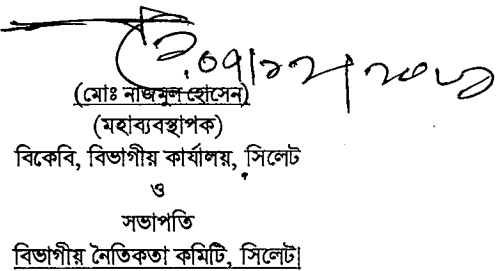 (মোঃ নাজমুল হোসেন)
(মহাব্যবস্থাপক)
বিকেবি, বিভাগীয় কার্যালয়, সিলেট
ও
সভাপতি
বিভাগীয় নৈতিকতা কমিটি, সিলেট।